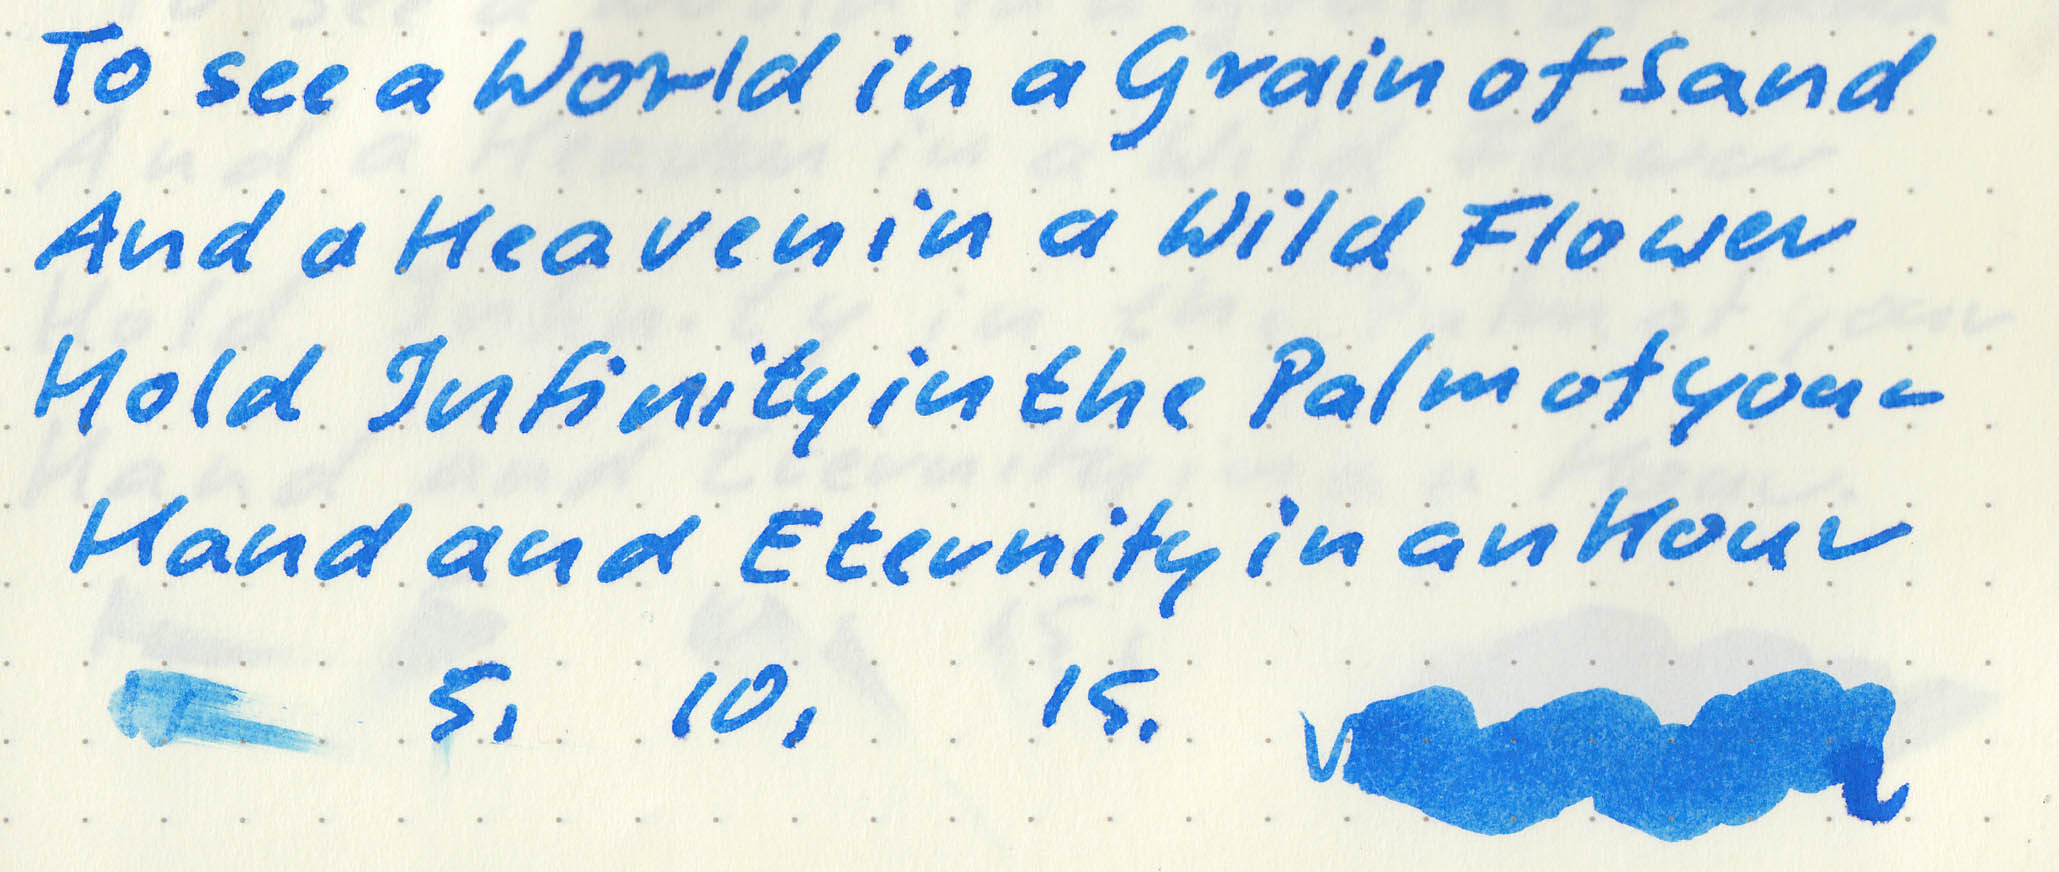 To see a World in a Grain of Sand
And a Heaven in a Wild Flower
Hold Infinity in the Palm of your
Hand and Eternity in an Hour
5, 10, 15.